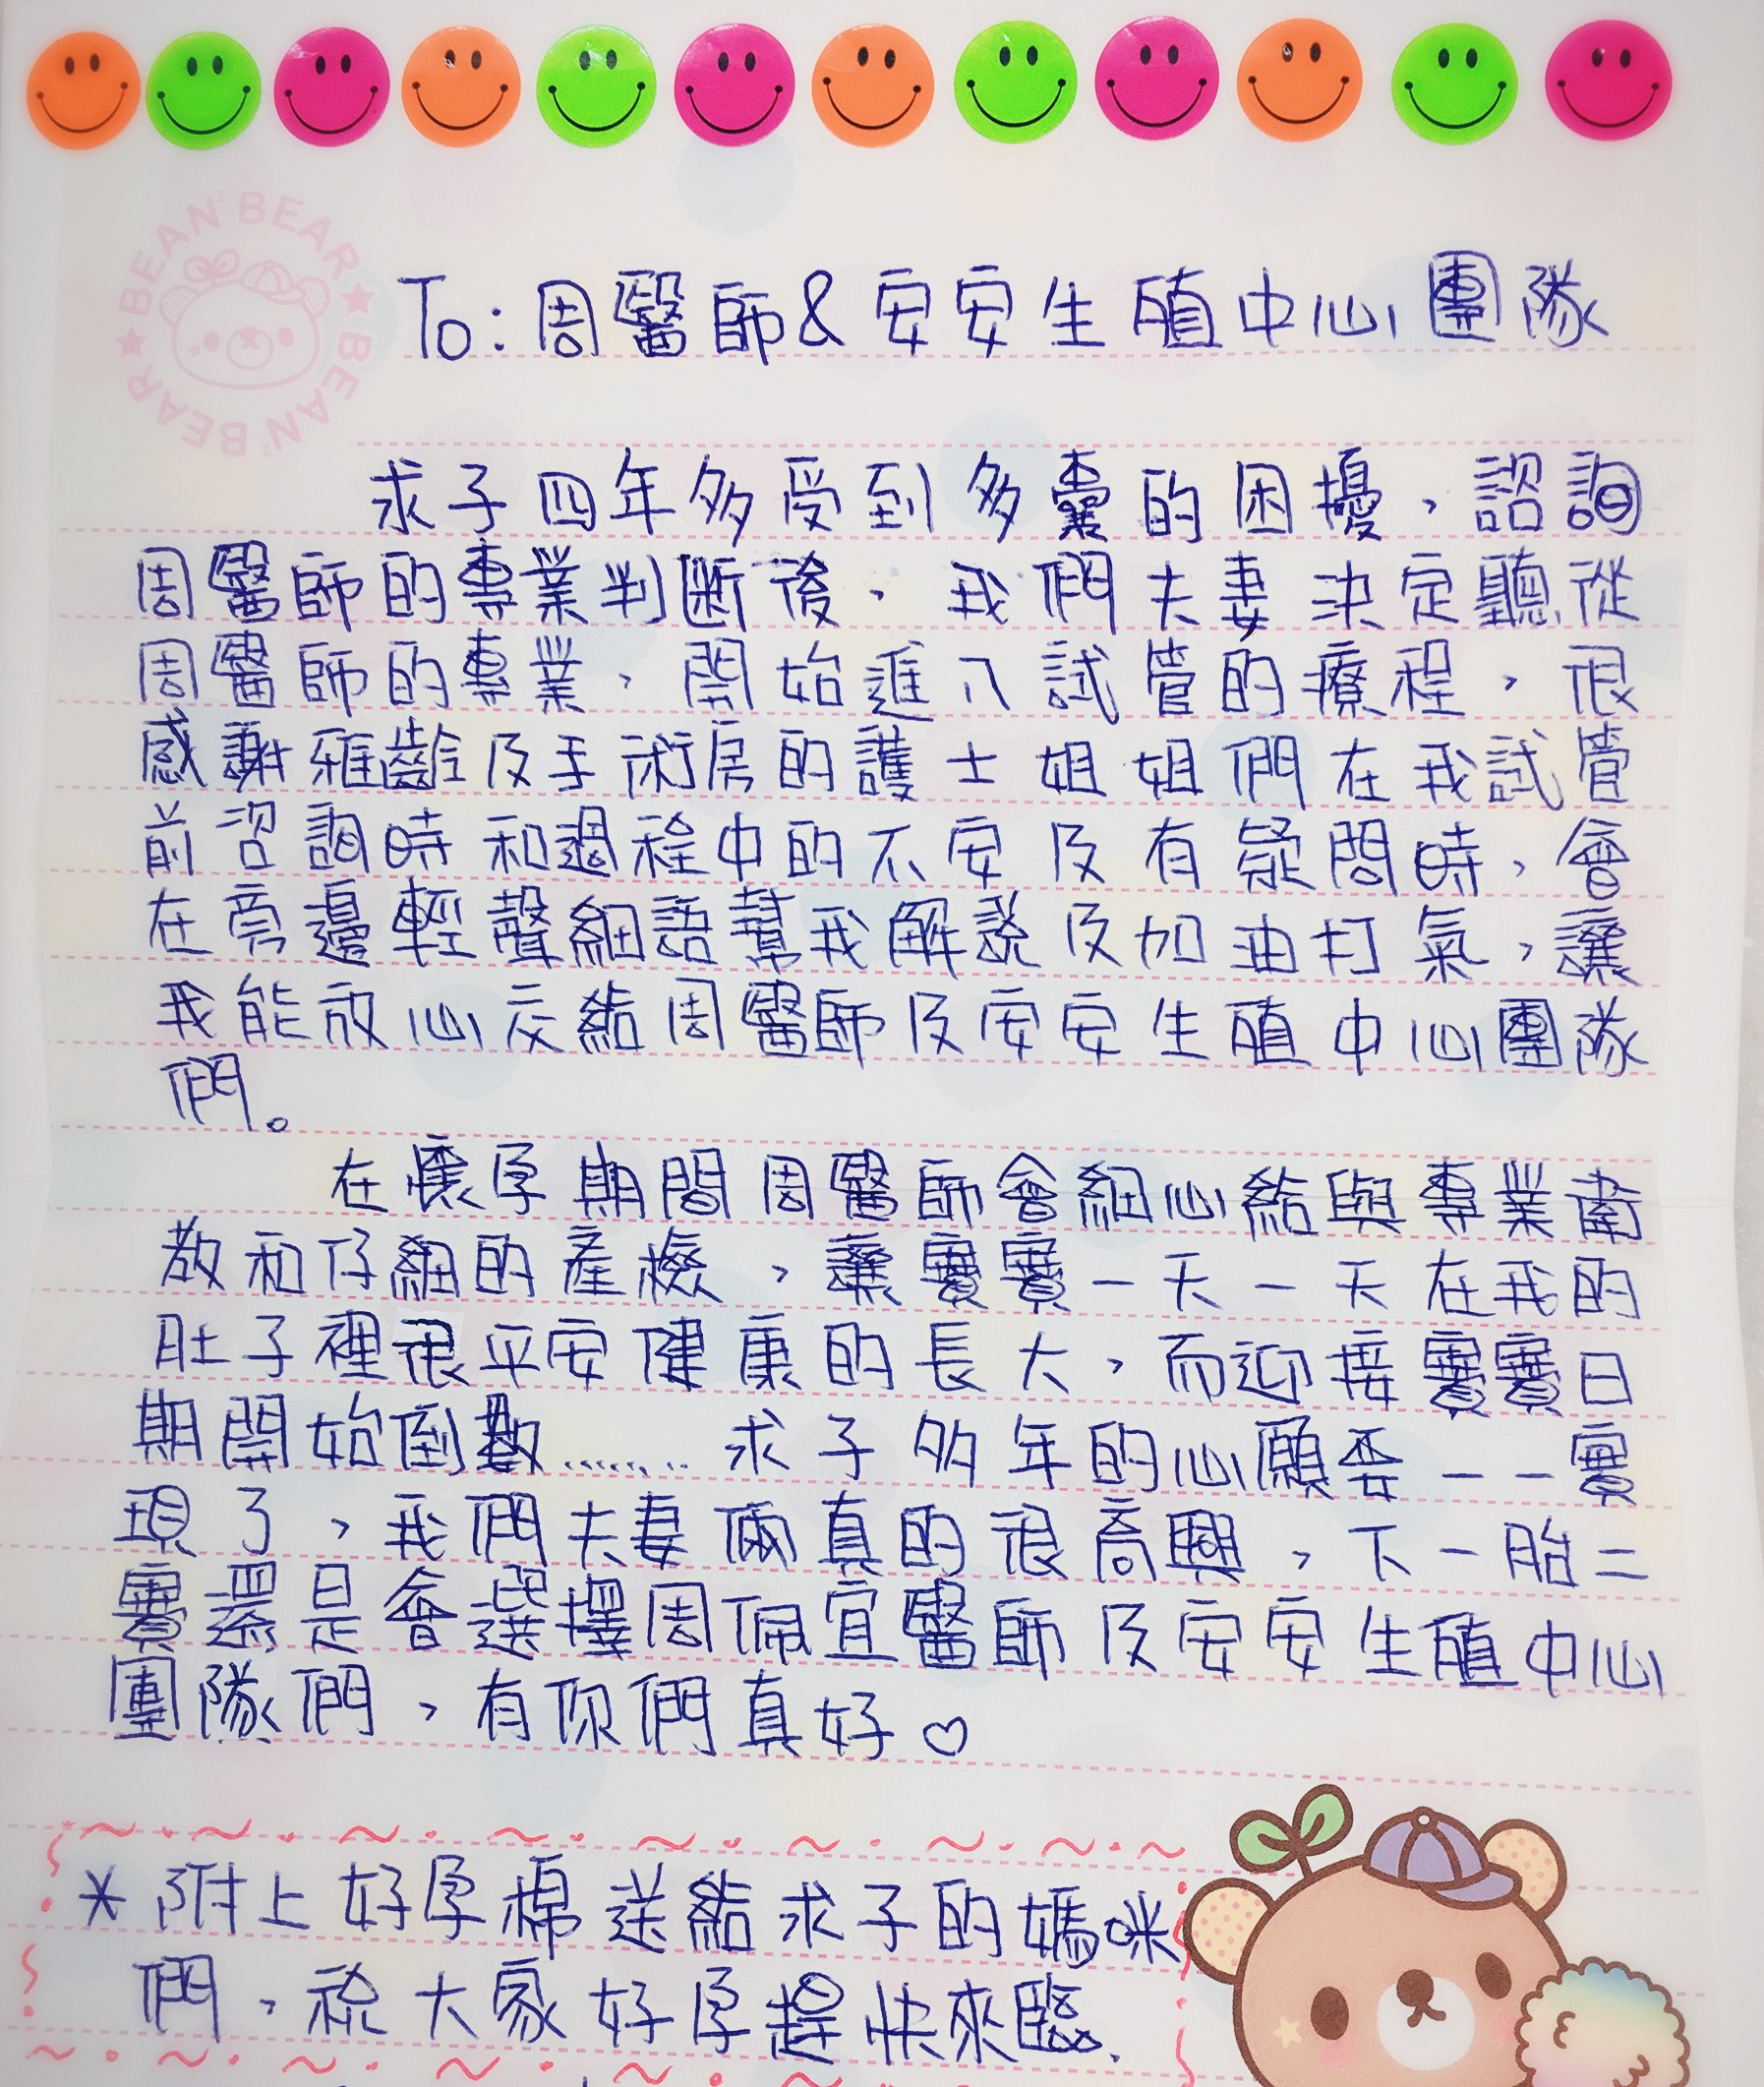 BEAN² BEAR ★ BEAN² BEAR ★
To: 周醫師&安安生殖中心團隊
求子四年多受到多囊的困擾,諮詢
周醫師的專業判斷後,我們夫妻決定聽從
周醫師的專業,開始進入試管的療程,很
感謝雅齡及手術房的護士姐姐們在我試管
前諮詢時和過程中的不安及有疑問時,會
在旁邊輕聲細語幫我解說及加油打氣,讓
我能放心交給周醫師及安安生殖中心團隊
們。
在懷孕期間周醫師會細心給與專業衛
教和仔細的產檢,讓寶寶一天一天在我的
肚子裡很平安健康的長大,而迎接寶寶日
期開始倒數........求子多年的心願要一一實
現了,我們夫妻倆真的很高興,下一胎二
寶還是會選擇周佩宜醫師及安安生殖中心
團隊們,有你們真好♡
*附上好孕棉送給求子的媽咪
們,祝大家好孕趕快來臨.